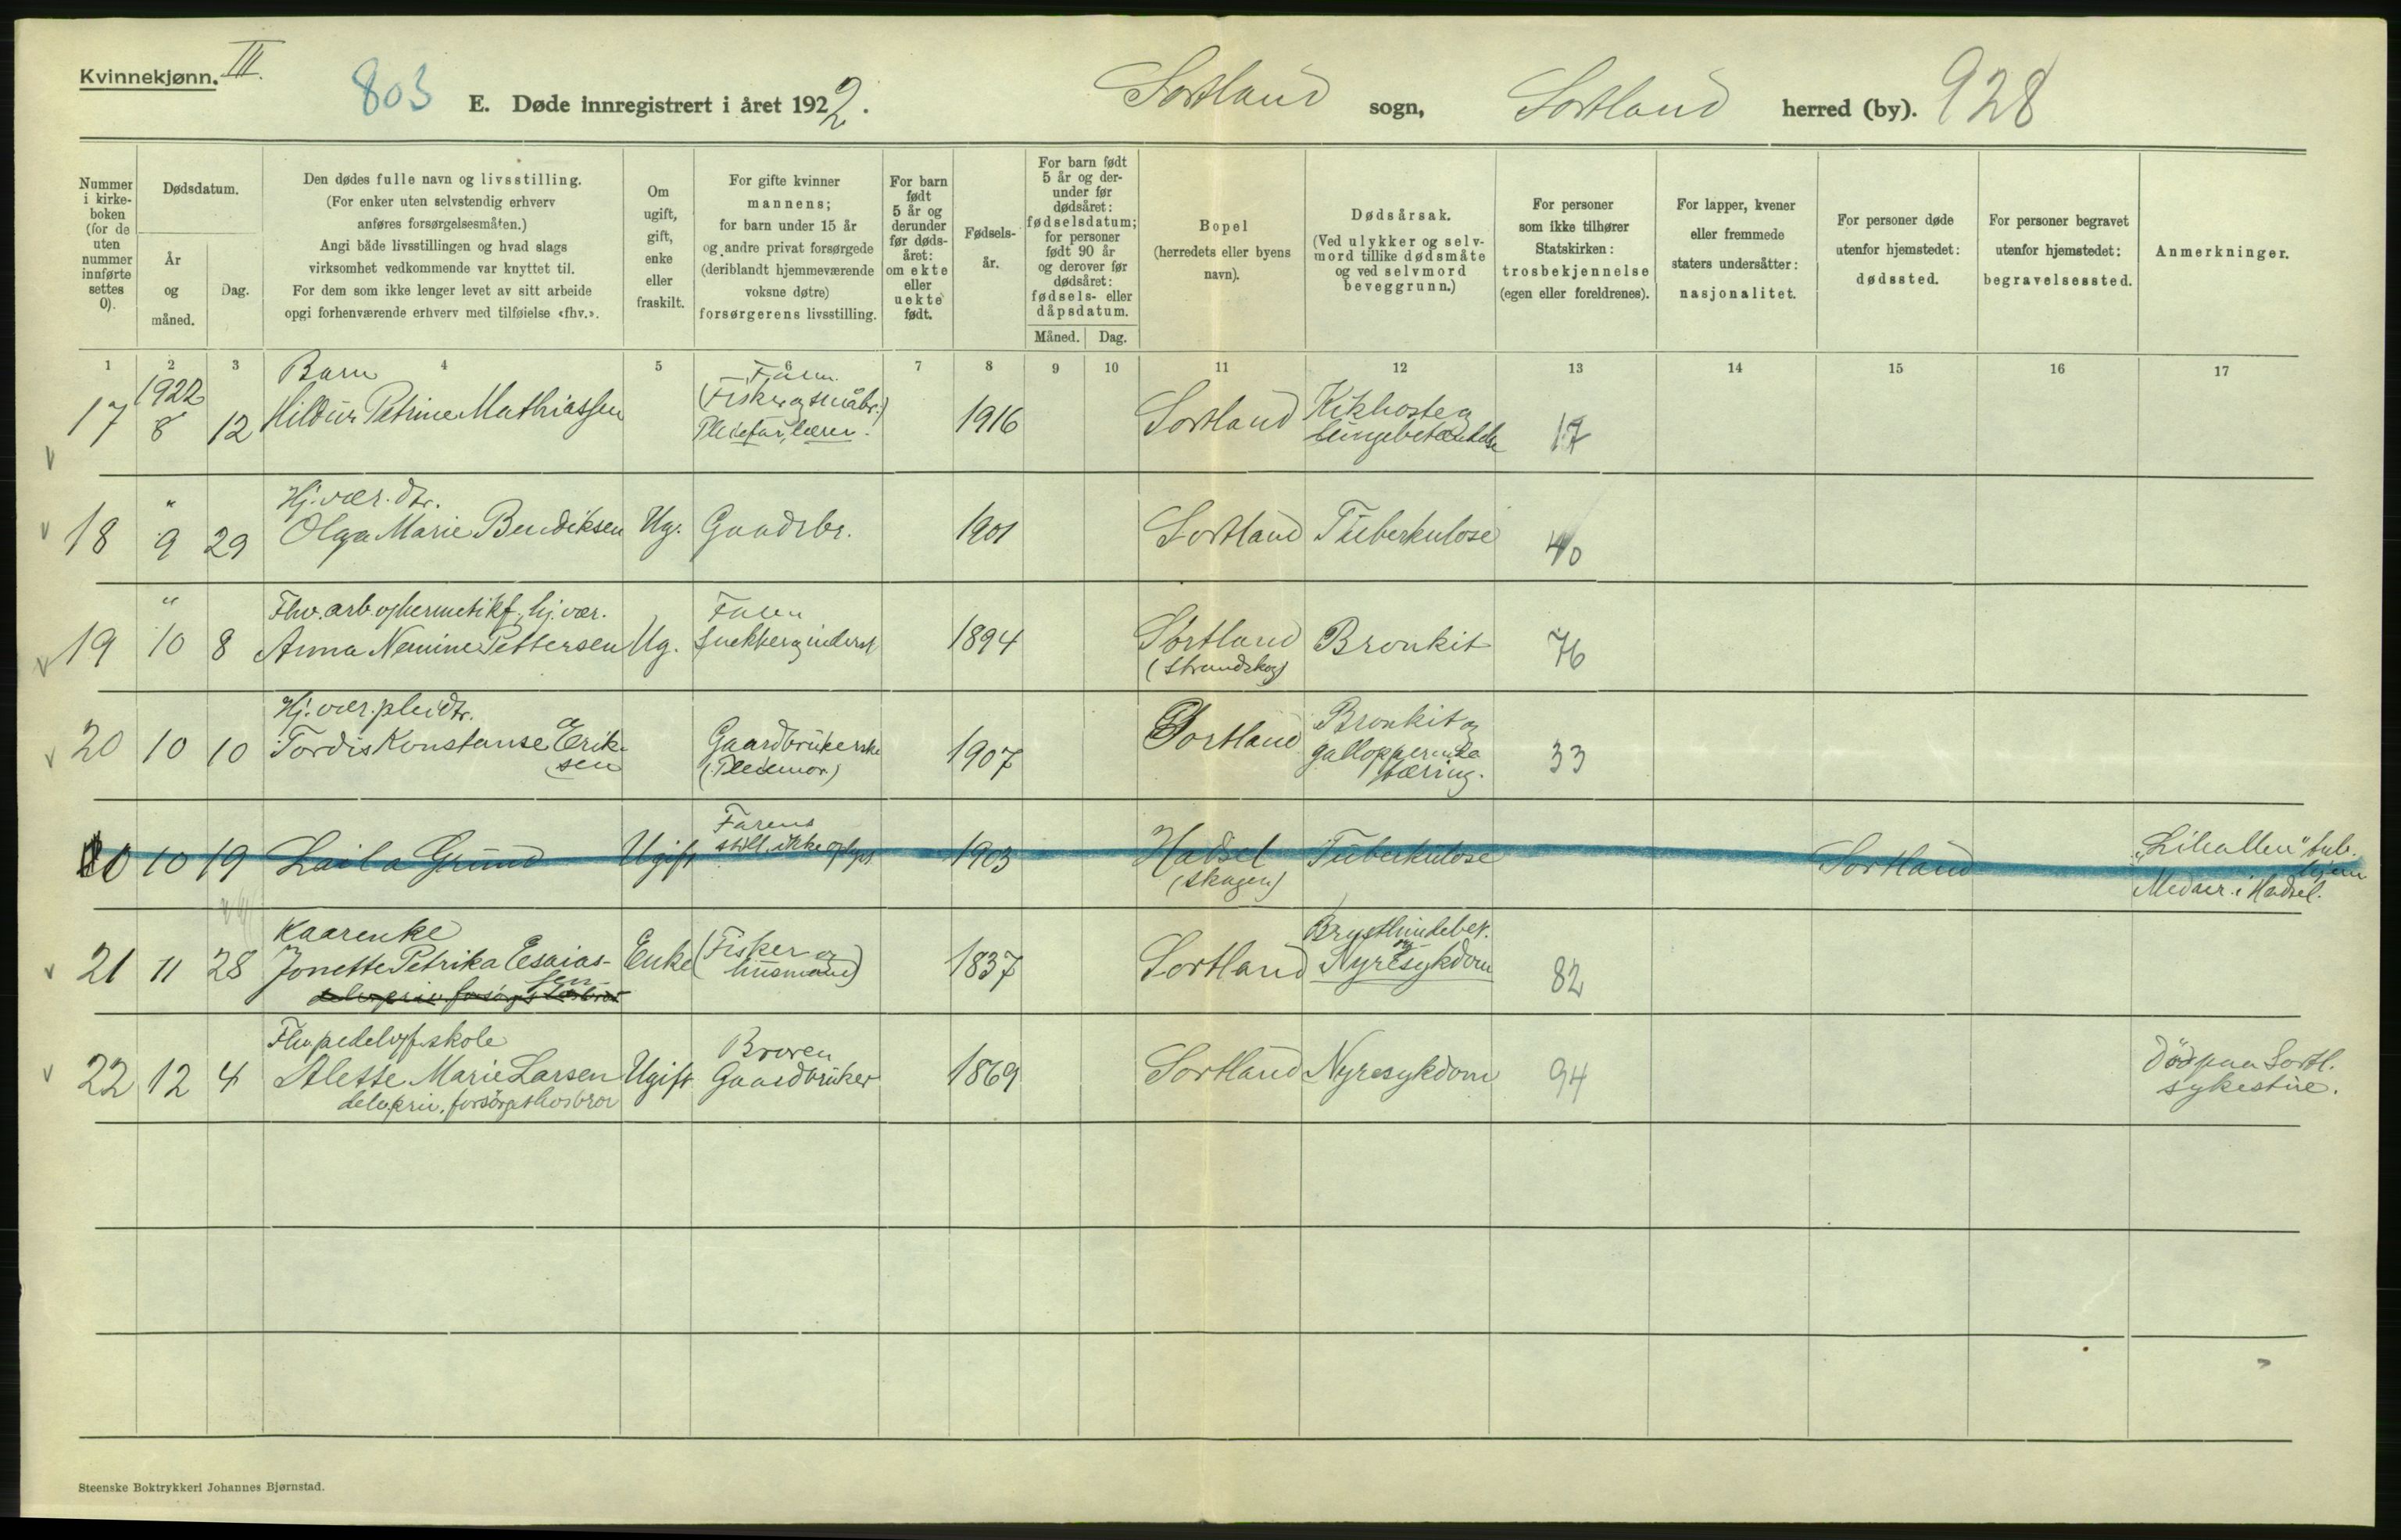 Kvinnekjønn. III.
803 E. Døde innregistrert i året 1922. Sortland sogn, Sortland herred (by). 928
Nummer
i kirke-
boken
(for de
uten
nummer
innførte
settes
0).
Dødsdatum.
År
og
måned.
Dag.
Den dødes fulle navn og livsstilling.
(For enker uten selvstendig erhverv
anføres forsørgelsesmåten.)
Angi både livsstillingen og hvad slags
virksomhet vedkommende var knyttet til.
For dem som ikke lenger levet av sitt arbeide
opgi forhenværende erhverv med tilføielse «fhv.».
Om
ugift,
gift,
enke
eller
fraskilt.
For gifte kvinner
mannens;
for barn under 15 år
og andre privat forsørgede
(deriblandt hjemmeværende
voksne døtre)
forsørgerens livsstilling.
For barn
født
5 år og
derunder
før døds-
året:
om ekte
eller
uekte
født.
Fødsels-
år.
For barn født
5 år og der-
under før
dødsåret:
fødselsdatum;
for personer
født 90 år
og derover før
dødsåret:
fødsels- eller
dåpsdatum.
Måned. Dag.
Bopel
(herredets eller byens
navn).
Dødsårsak.
(Ved ulykker og selv-
mord tillike dødsmåte
og ved selvmord
beveggrunn.)
For personer
som ikke tilhører
Statskirken:
trosbekjennelse
(egen eller foreldrenes).
For lapper, kvener
eller fremmede
staters undersåtter:
nasjonalitet.
For personer døde
utenfor hjemstedet:
dødssted.
For personer begravet
utenfor hjemstedet:
begravelsessted.
Anmerkninger.
1 2 3 4 5 6 7 8 9 10 11 12 13 14 15 16 17
1922 Barn
(Fisker og småbr.) Kikhoste og
17 8 12 Hildur Petrine Mathiassen Pleiefar, lærer. 1916 Sortland lungebetændelse 17
" Hj. vær. dtr.
18 9 29 Olga Marie Bendiksen Ug. Gaardbr. 1901 Sortland Tuberkulose 40
" Fhv. arb. hermetikf., hj. vær. Faren
19 10 8 Anna Nemine Pettersen Ug. snekker og inderst 1894 Sortland Bronkit 76
(Strandskog)
Hj. vær. pleidtr. Bronkit og
20 10 10 Tordis Konstanse Erik- Gaardbrukerske 1907 Sortland galopperende 33
sen (Pleiemor) tæring.
Farens
0 10 19 Laila Grund Ugift still. ikke oplyst 1903 Hadsel Tuberkulose Sortland "Lihallen" tub.
hjem
(Skagen) Meddr. i Hadsel.
Kaarenke Brysthindebet.
21 11 28 Jonette Petrika Esaias- Enke (Fisker og 1837 Sortland og Nyresykdom 82
sen husmand)
Fhv. pedel skole Broren Död paa Sortl.
22 12 4 Alette Marie Larsen Ugift Gaardbruker 1869 Sortland Nyresykdom 94 sykestue.
delv. priv. forsörget hos bror
Steenske Boktrykkeri Johannes Bjørnstad.